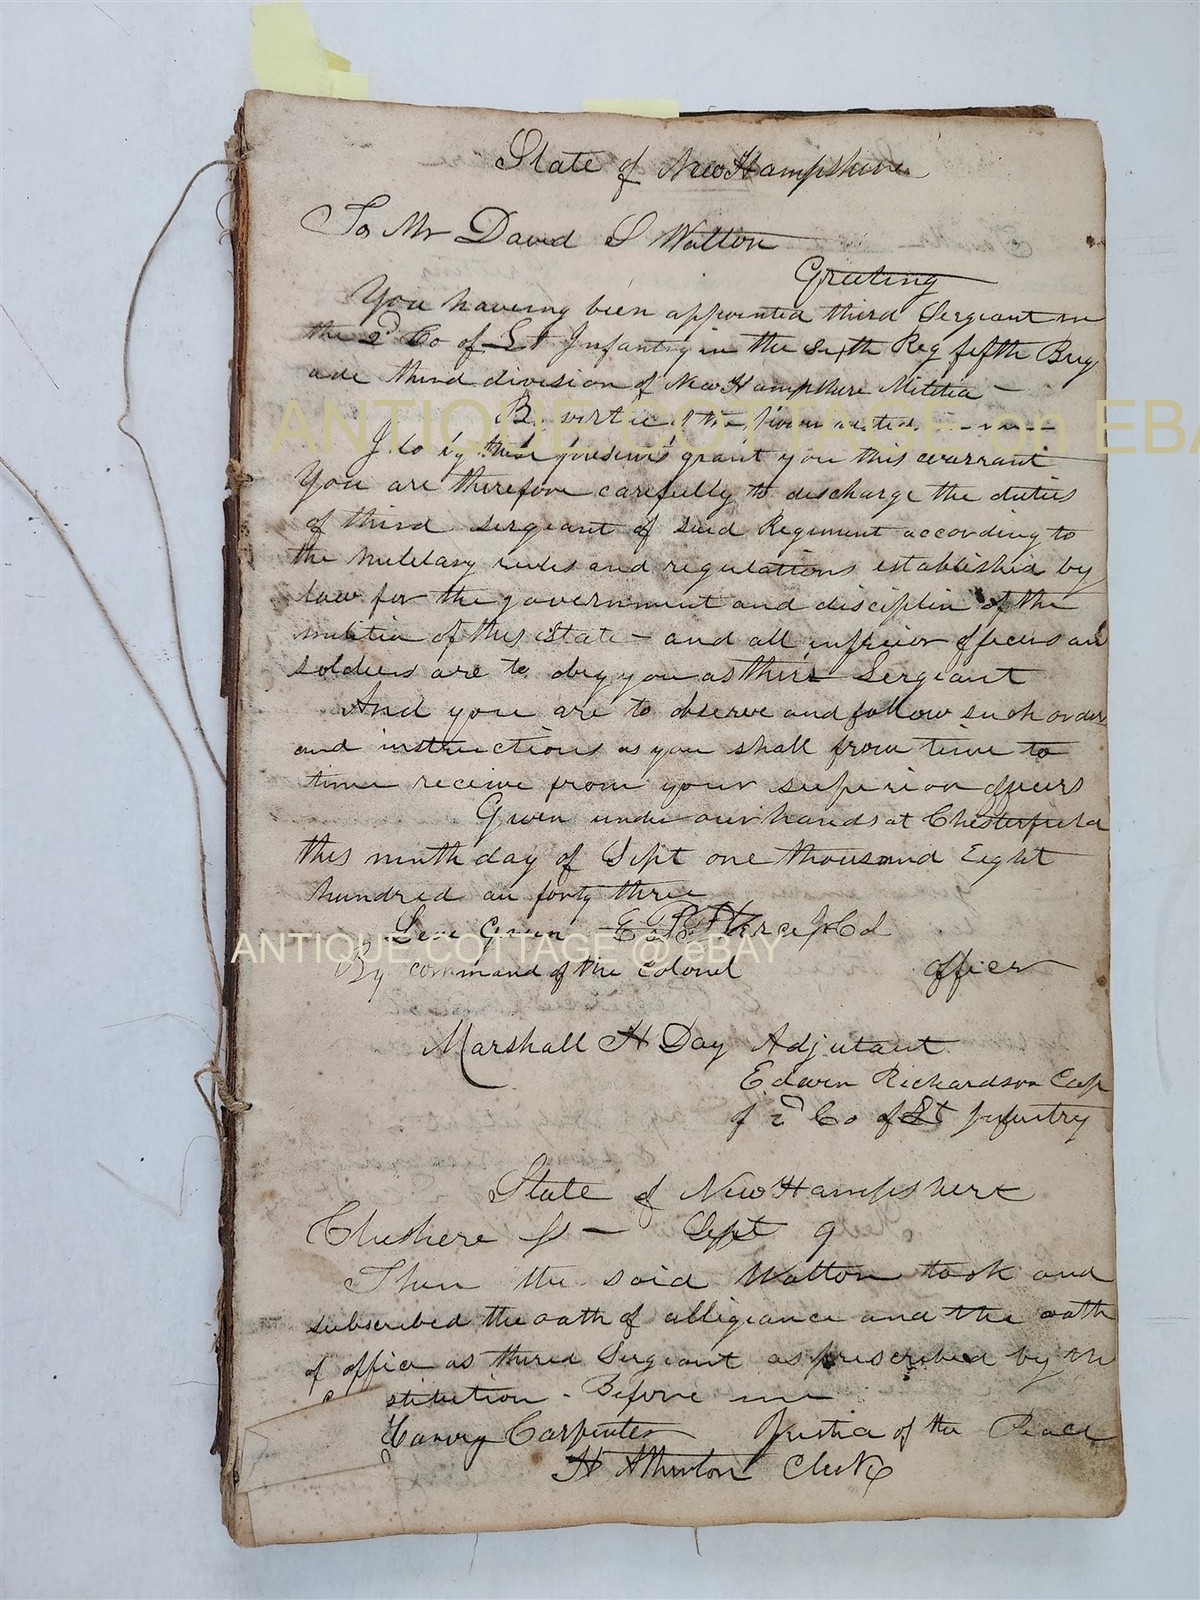 State of New Hampshire
To Mr David S Walton
Greeting
You haveing been appointed third Sergeant in
the 2d Co of Lt Infantry in the Sixth Reg fifth Brig
ade third division of New Hampshire Militia —
By vertue of the
I do by these presents grant you this warrant
You are therefore carefully to discharge the duties
of third sergeant of said Regiment according to
the military rules and regulations established by
law for the government and disciplin of the
militia of this State — and all inferior officers an
soldiers are to obey you as their Sergeant
And you are to observe and follow such orders
and instructions as you shall from time to
time receive from your superior officers
Given under our hands at Chesterfield
this ninth day of Sept one thousand Eight
hundred an forty three
Levi Green Col
By command of the Colonel officer
Marshall H Day Adjutant
Edwin Richardson Cap
of 2d Co of Lt Infantry
State of New Hampshire
Cheshere ss — Sept 9
Then the said Walton took and
subscribed the oath of alligiance and the oath
of office as third Sergeant as prescribed by the
stitution - Before me
Harvey Carpenter Justice of the Peace
H Atherton Clerk
ANTIQUE COTTAGE on EBA
ANTIQUE COTTAGE @ eBAY